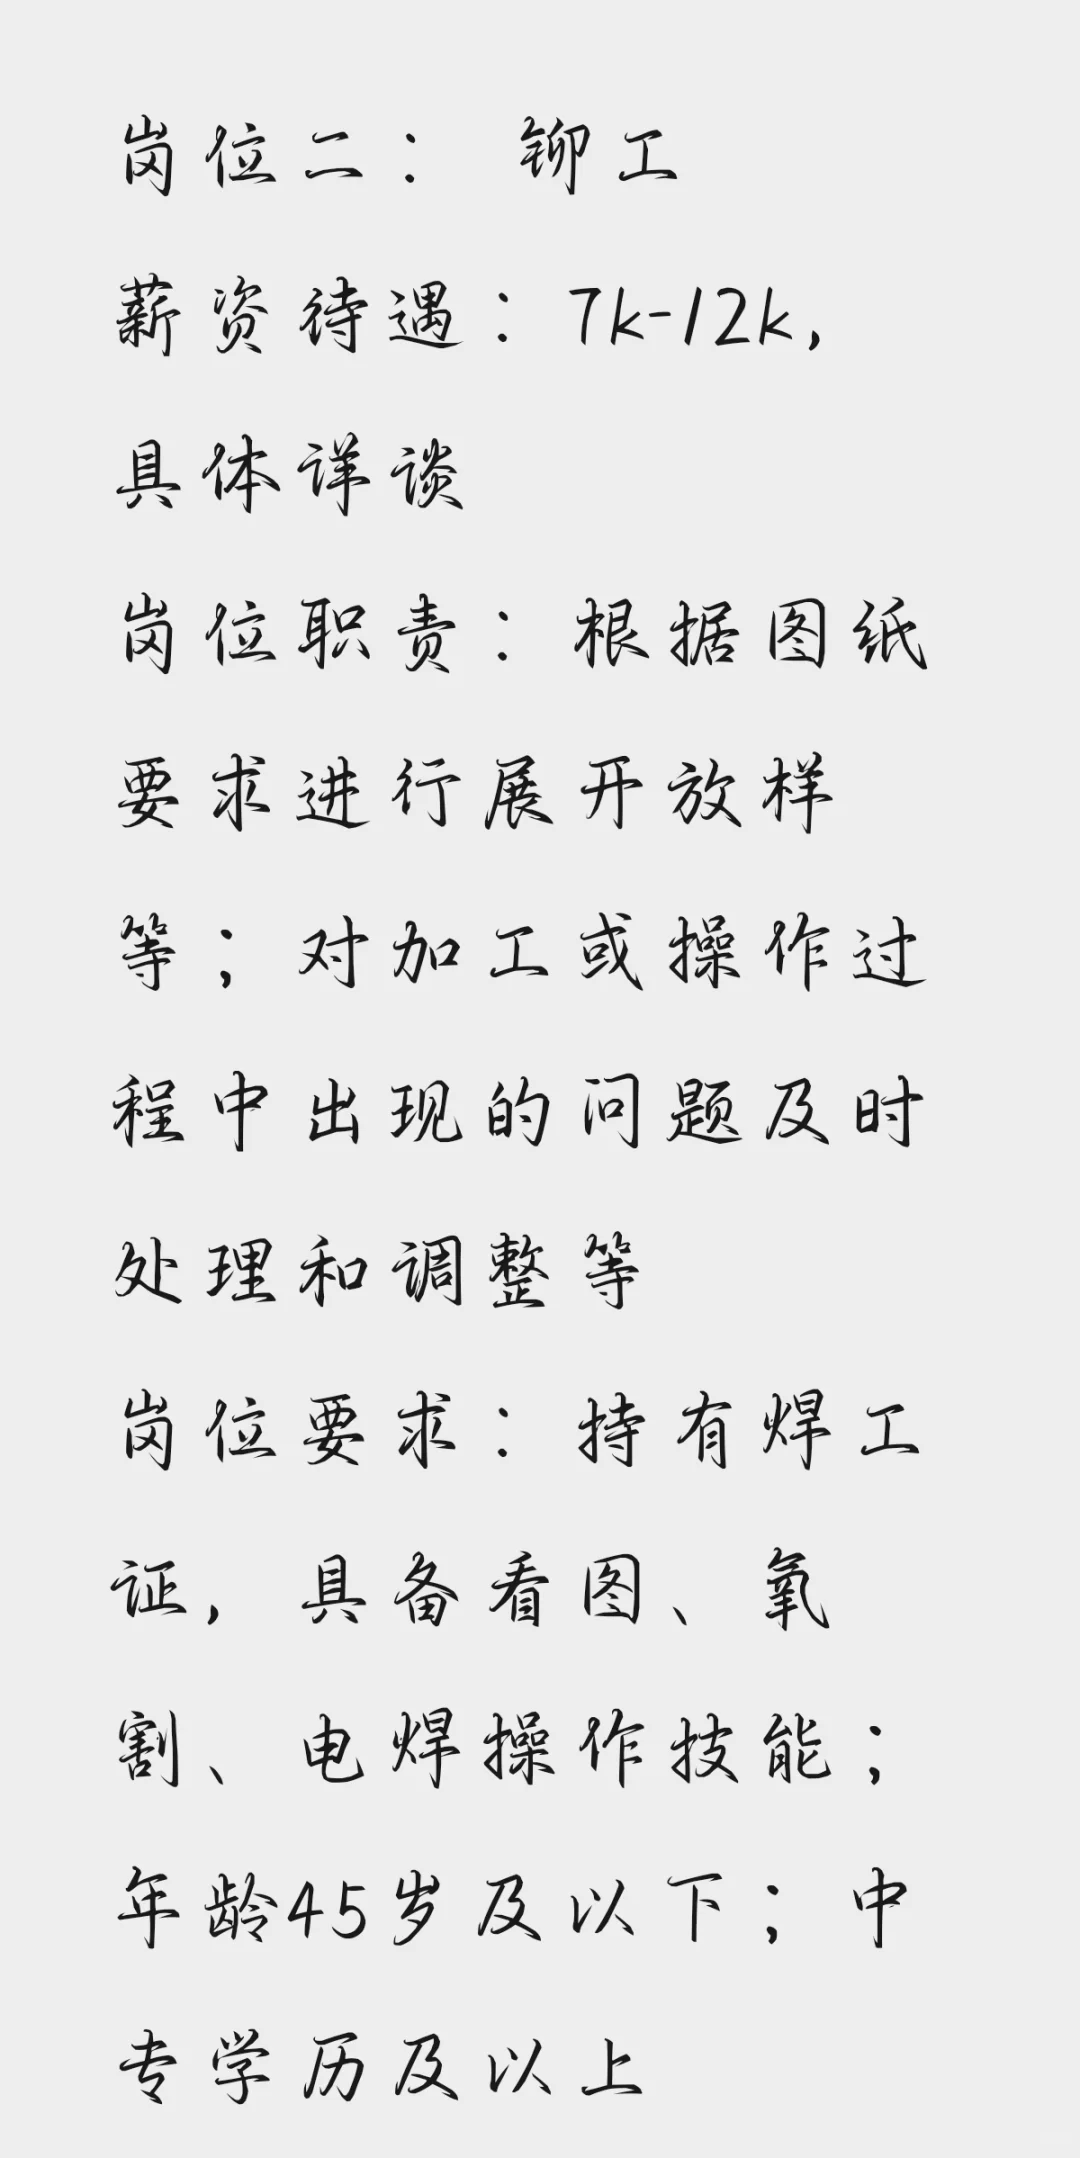 岗位二： 铆工
薪资待遇：7k-12k,
具体详谈
岗位职责：根据图纸
要求进行展开放样
等；对加工或操作过
程中出现的问题及时
处理和调整等
岗位要求：持有焊工
证，具备看图、氧
割、电焊操作技能；
年龄45岁及以下；中
专学历及以上